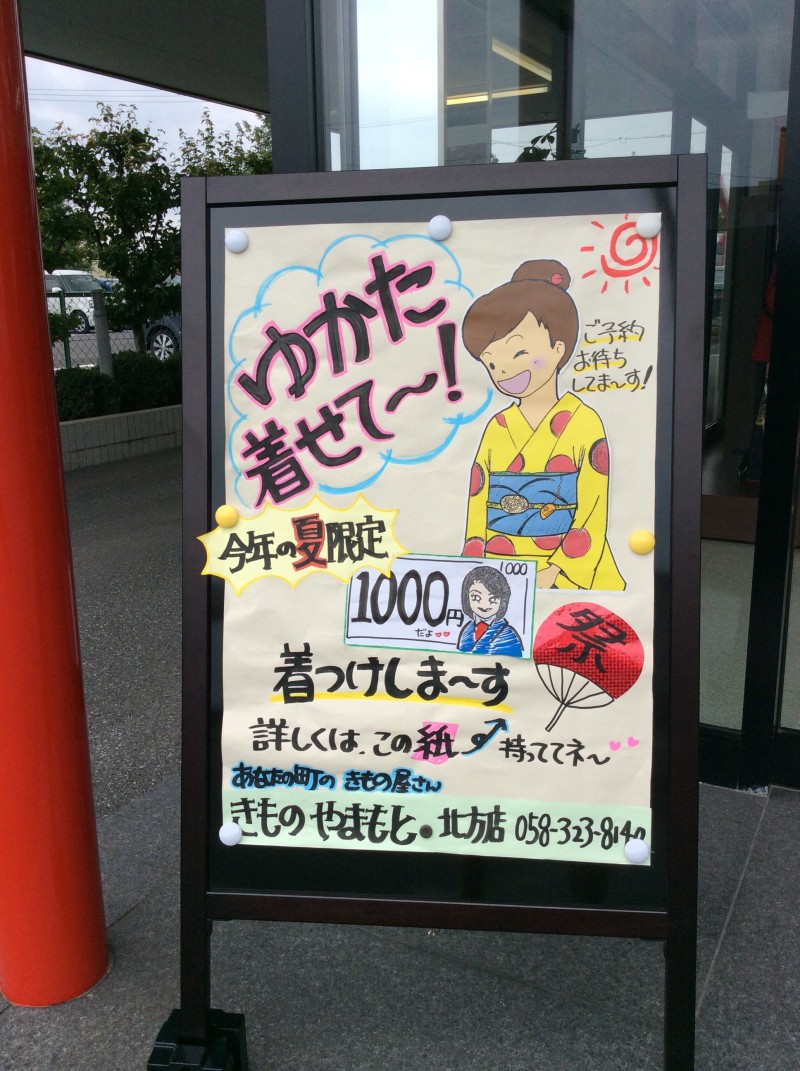 ゆかた
着せて〜!
ご予約
お待ち
してま〜す!
今年の夏限定
1000
1000円
だよ
祭
着つけしま〜す
詳しくは、この紙
持っててネ〜
あなたの町の きもの屋さん
きもの やまもと・北方店 058-323-8140